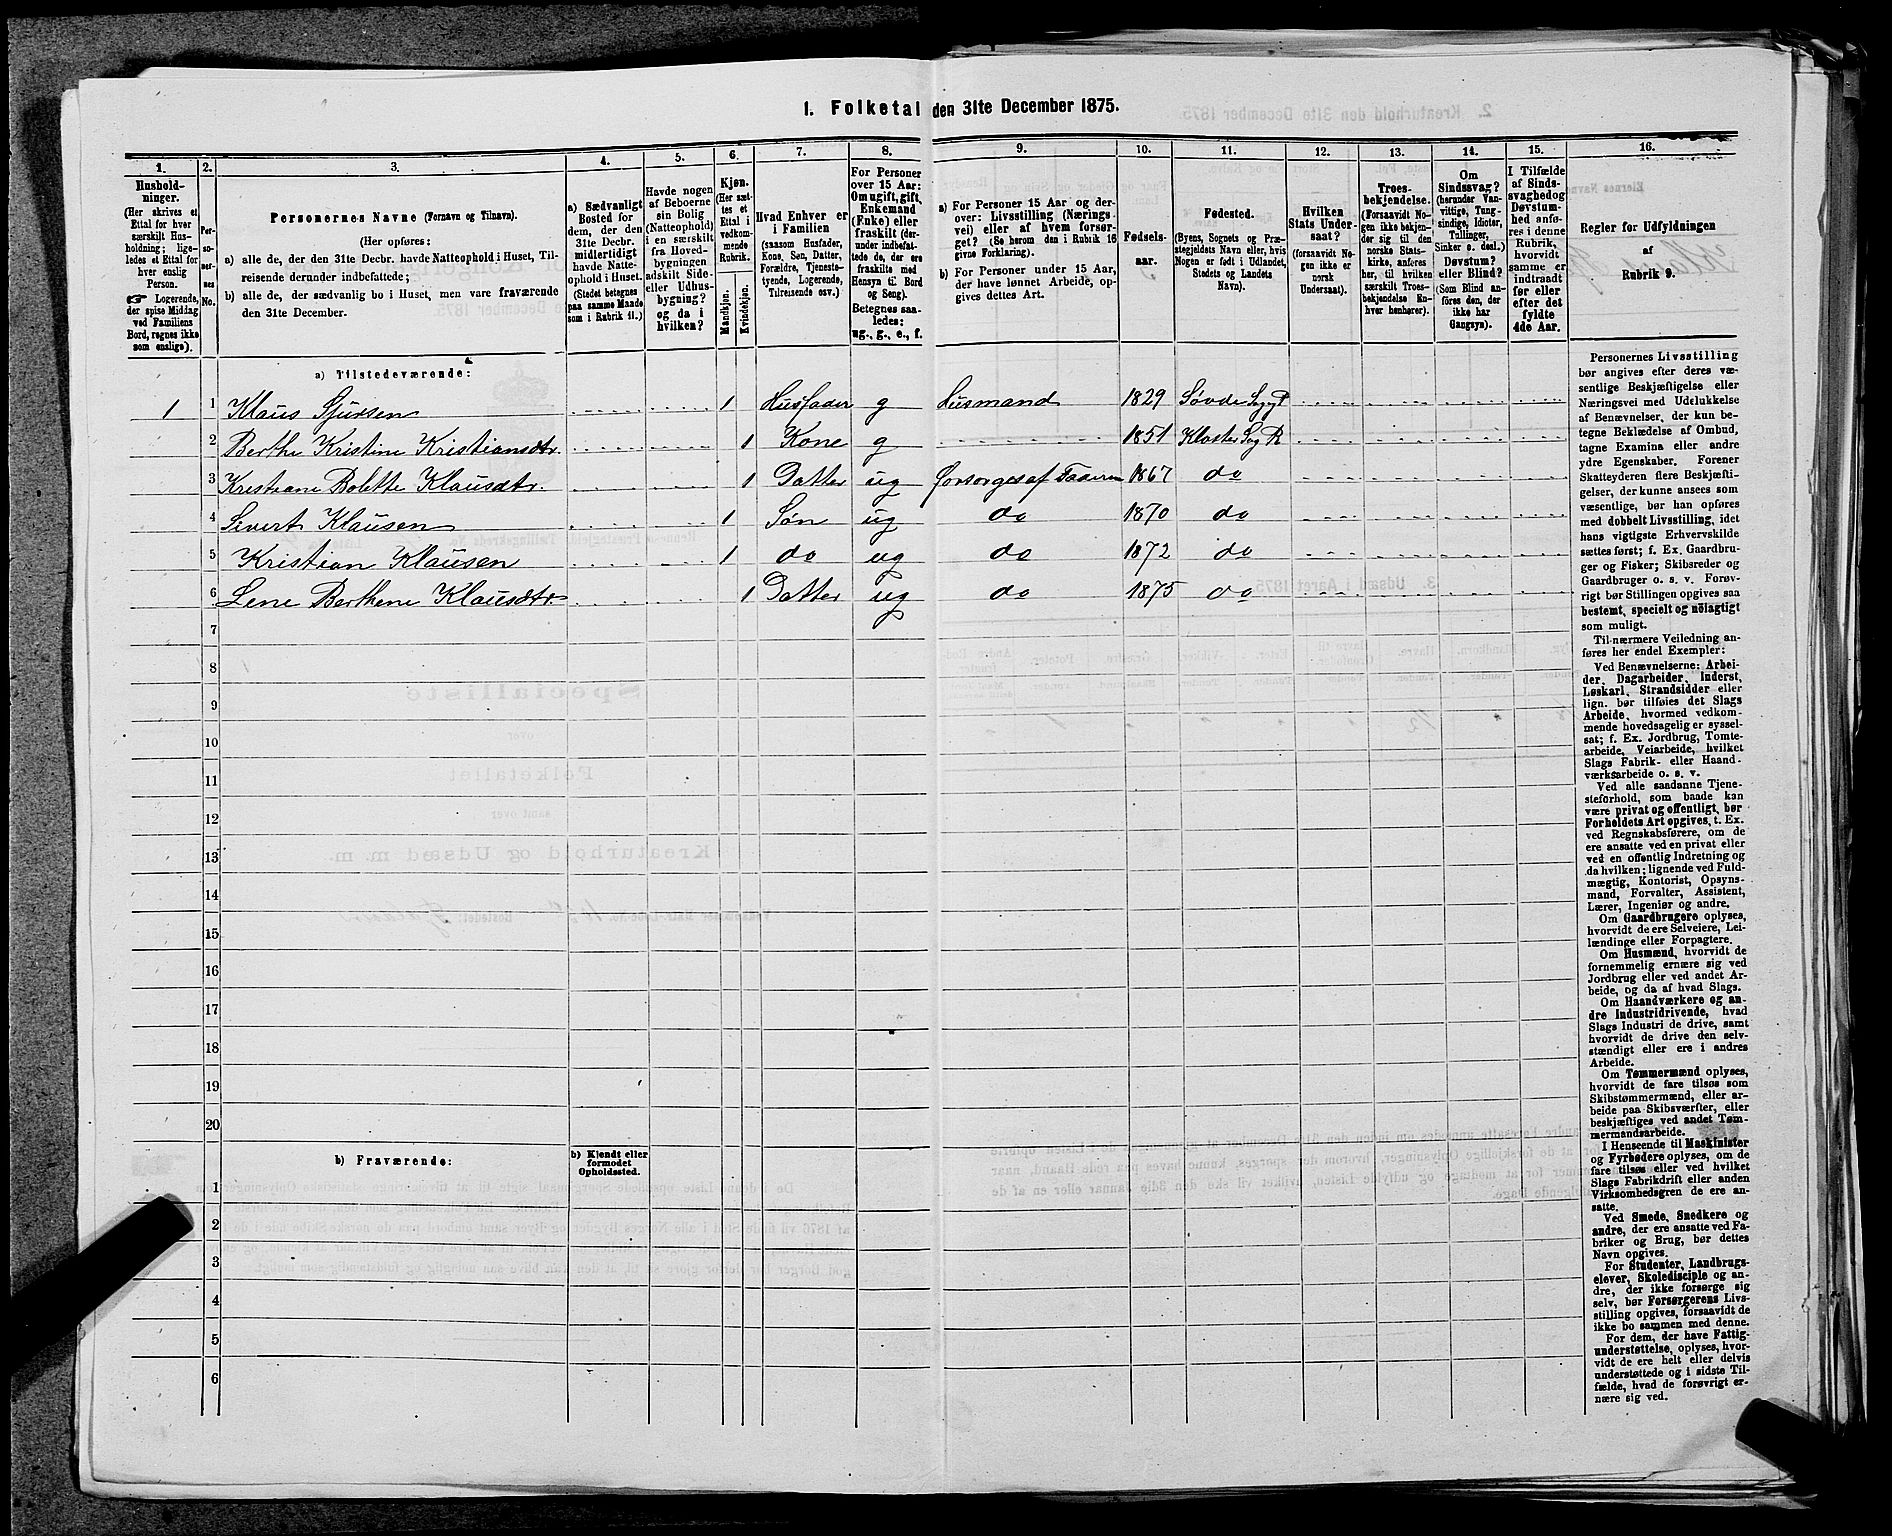 1. Folketal den 31te December 1875.
1. 2. 3. 4. 5. 6. 7. 8. 9. 10. 11. 12. 13. 14. 15. 16.
Hushold-
ninger.
(Her skrives et
Ettal for hver
særskilt Hus-
holdning; lige-
ledes et Ettal for
hver enslig
Person.
☞ Logerende,
der spise Middag
ved Familiens
Bord, regnes ikke
som enslige).
Per-
so-
ner-
nes
No.
Personernes Navne (Fornavn og Tilnavn).
(Her opføres:
a) alle de, der den 31te Decbr. havde Natteophold i Huset, Til-
reisende derunder indbefattede;
b) alle de, der sædvanlig bo i Huset, men vare fraværende
den 31te December.
a) Sædvanligt
Bosted for
dem, der den
31te Decbr.
midlertidigt
havde Natte-
ophold i Huset.
(Stedet betegnes
paa samme Maade
som i Rubrik 11.)
Havde nogen
af Beboerne
sin Bolig
(Natteophold)
i en særskilt
fra Hoved-
bygningen
adskilt Side-
eller Udhus-
bygning?
og da i
hvilken?
Kjøn.
(Her sæt-
tes et
Ettal i
vedkom-
mende
Rubrik.
Mandkjøn.
Kvindekjøn.
Hvad Enhver er
i Familien
(saasom Husfader,
Kone, Søn, Datter,
Forældre, Tjeneste-
tyende, Logerende,
Tilreisende osv.)
For Personer
over 15 Aar:
Om ugift, gift,
Enkemand
(Enke) eller
fraskilt (der-
under indbefat-
tede de, der
ere fraskilte med
Hensyn til Bord
og Seng).
Betegnes saa-
ledes:
ug., g., e., f.
a) For Personer 15 Aar og der-
over: Livsstilling (Nærings-
vei) eller af hvem forsør-
get? (Se herom den i Rubrik 16
givne Forklaring).
b) For Personer under 15 Aar,
der have lønnet Arbeide, op-
gives dettes Art.
Fødsels-
aar.
Fødested.
(Byens, Sognets og Præ-
stegjeldets Navn eller, hvis
Nogen er født i Udlandet,
Stedets og Landets
Navn).
Hvilken
Stats Under-
saat?
(forsaavidt No-
gen ikke er
norsk
Undersaat).
Troes-
bekjendelse.
(Forsaavidt No-
gen ikke bekjen-
der sig til den
norske Stats-
kirke, anføres
her, til hvilken
særskilt Troes-
bekjendelse En-
hver henhører).
Om
Sindssvag?
(herunder Van-
vittige, Tung-
sindige, Idioter,
Tullinger,
Sinker o. desl.)
Døvstum?
eller Blind?
(Som Blind an-
føres den, der
ikke har
Gangsyn).
I Tilfælde
af Sinds-
svaghed og
Døvstum-
hed anfø-
res i denne
Rubrik,
hvorvidt
samme er
indtraadt
før eller
efter det
fyldte
4de Aar.
Regler for Udfyldningen
af
Rubrik 9.
a) Tilstedeværende:
1 1 Klaus Sjursen 1 Husfader g Husmand 1829 Søvde
2 Berthe Kristine Kristiansdtr. 1 Kone g 1851 Kloster
3 Kristiane Bolette Klausdtr. 1 Datter ug forsørges af Faderen 1867 do
4 Sivert Klausen 1 Søn ug do 1870 do
5 Kristian Klausen 1 do ug do 1872 do
6 Lene Berthene Klausdtr. 1 Datter ug do 1875 do
7
8
9
10
11
12
13
14
15
16
17
18
19
20
b) Fraværende:
b) Kjendt eller
formodet
Opholdssted.
1
2
3
4
5
6
Personernes Livsstilling
bør angives efter deres væ-
sentlige Beskjæftigelse eller
Næringsvei med Udelukkelse
af Benævnelser, der kun be-
tegne Beklædelse af Ombud,
tagne Examina eller andre
ydre Egenskaber. Forener
Skatteyderen flere Beskjæfti-
gelser, der kunne ansees som
væsentlige, bør han opføres
med dobbelt Livsstilling, idet
hans vigtigste Erhvervskilde
sættes først; f. Ex. Gaardbru-
ger og Fisker; Skibsreder og
Gaardbruger o. s. v. Forøv-
rigt bør Stillingen opgives saa
bestemt, specielt og nölagtigt
som muligt.
Til nærmere Veiledning an-
føres her endel Exempler:
Ved Benævnelserne: Arbei-
der, Dagarbeider, Inderst,
Løskarl, Strandsidder eller
lign. bør tilføies det Slags
Arbeide, hvormed vedkom-
mende hovedsagelig er syssel-
sat; f. Ex. Jordbrug, Tomte-
arbeide, Veiarbeide, hvilket
Slags Fabrik- eller Haand-
værksarbeide o. s. v.
Ved alle saadanne Tjene-
steforhold, som baade kan
være privat og offentligt, bør
Forholdets Art opgives, t. Ex.
ved Regnskabsførere, om de
ere ansatte ved en privat eller
ved en offentlig Indretning og
da hvilken; lignende ved Fuld-
mægtig, Kontorist, Opsyns-
mand, Forvalter, Assistent,
Lærer, Ingeniør og andre.
Om Gaardbrugere oplyses,
hvorvidt de ere Selveiere, Lei-
lændinge eller Forpagtere.
Om Husmænd, hvorvidt de
fornemmelig ernære sig ved
Jordbrug eller ved andet Ar-
beide, og da af hvad Slags.
Om Haandværkere og an-
dre Industridrivende, hvad
Slags Industri de drive, samt
hvorvidt de drive den selv-
stændigt eller ere i andres
Arbeide.
Om Tømmermænd oplyses,
hvorvidt de fare tilsøs som
Skibstømmermænd, eller ar-
beide paa Skibsværfter, eller
beskjæftiges ved andet Tøm-
mermandsarbeide.
I Henseende til Maskinister
og Fyrbødere oplyses, om de
fare tilsøs eller ved hvilket
Slags Fabrikdrift eller anden
Virksomhedsgren de ere an-
satte.
Ved Smede, Snedkere og
andre, der ere ansatte ved Fa-
briker og Brug, bør dettes
Navn opgives.
For Studenter, Landbrugs-
elever, Skoledisciple og an-
dre, der ikke forsørge sig
selv, bør Forsørgerens Livs-
stilling opgives, forsaavidt de
ikke bo sammen med denne.
For dem, der have Fattig-
understøttelse, oplyses, hvor-
vidt de ere helt eller delvis
understøttede og i sidste Til-
fælde, hvad de forøvrigt er-
nære sig ved.